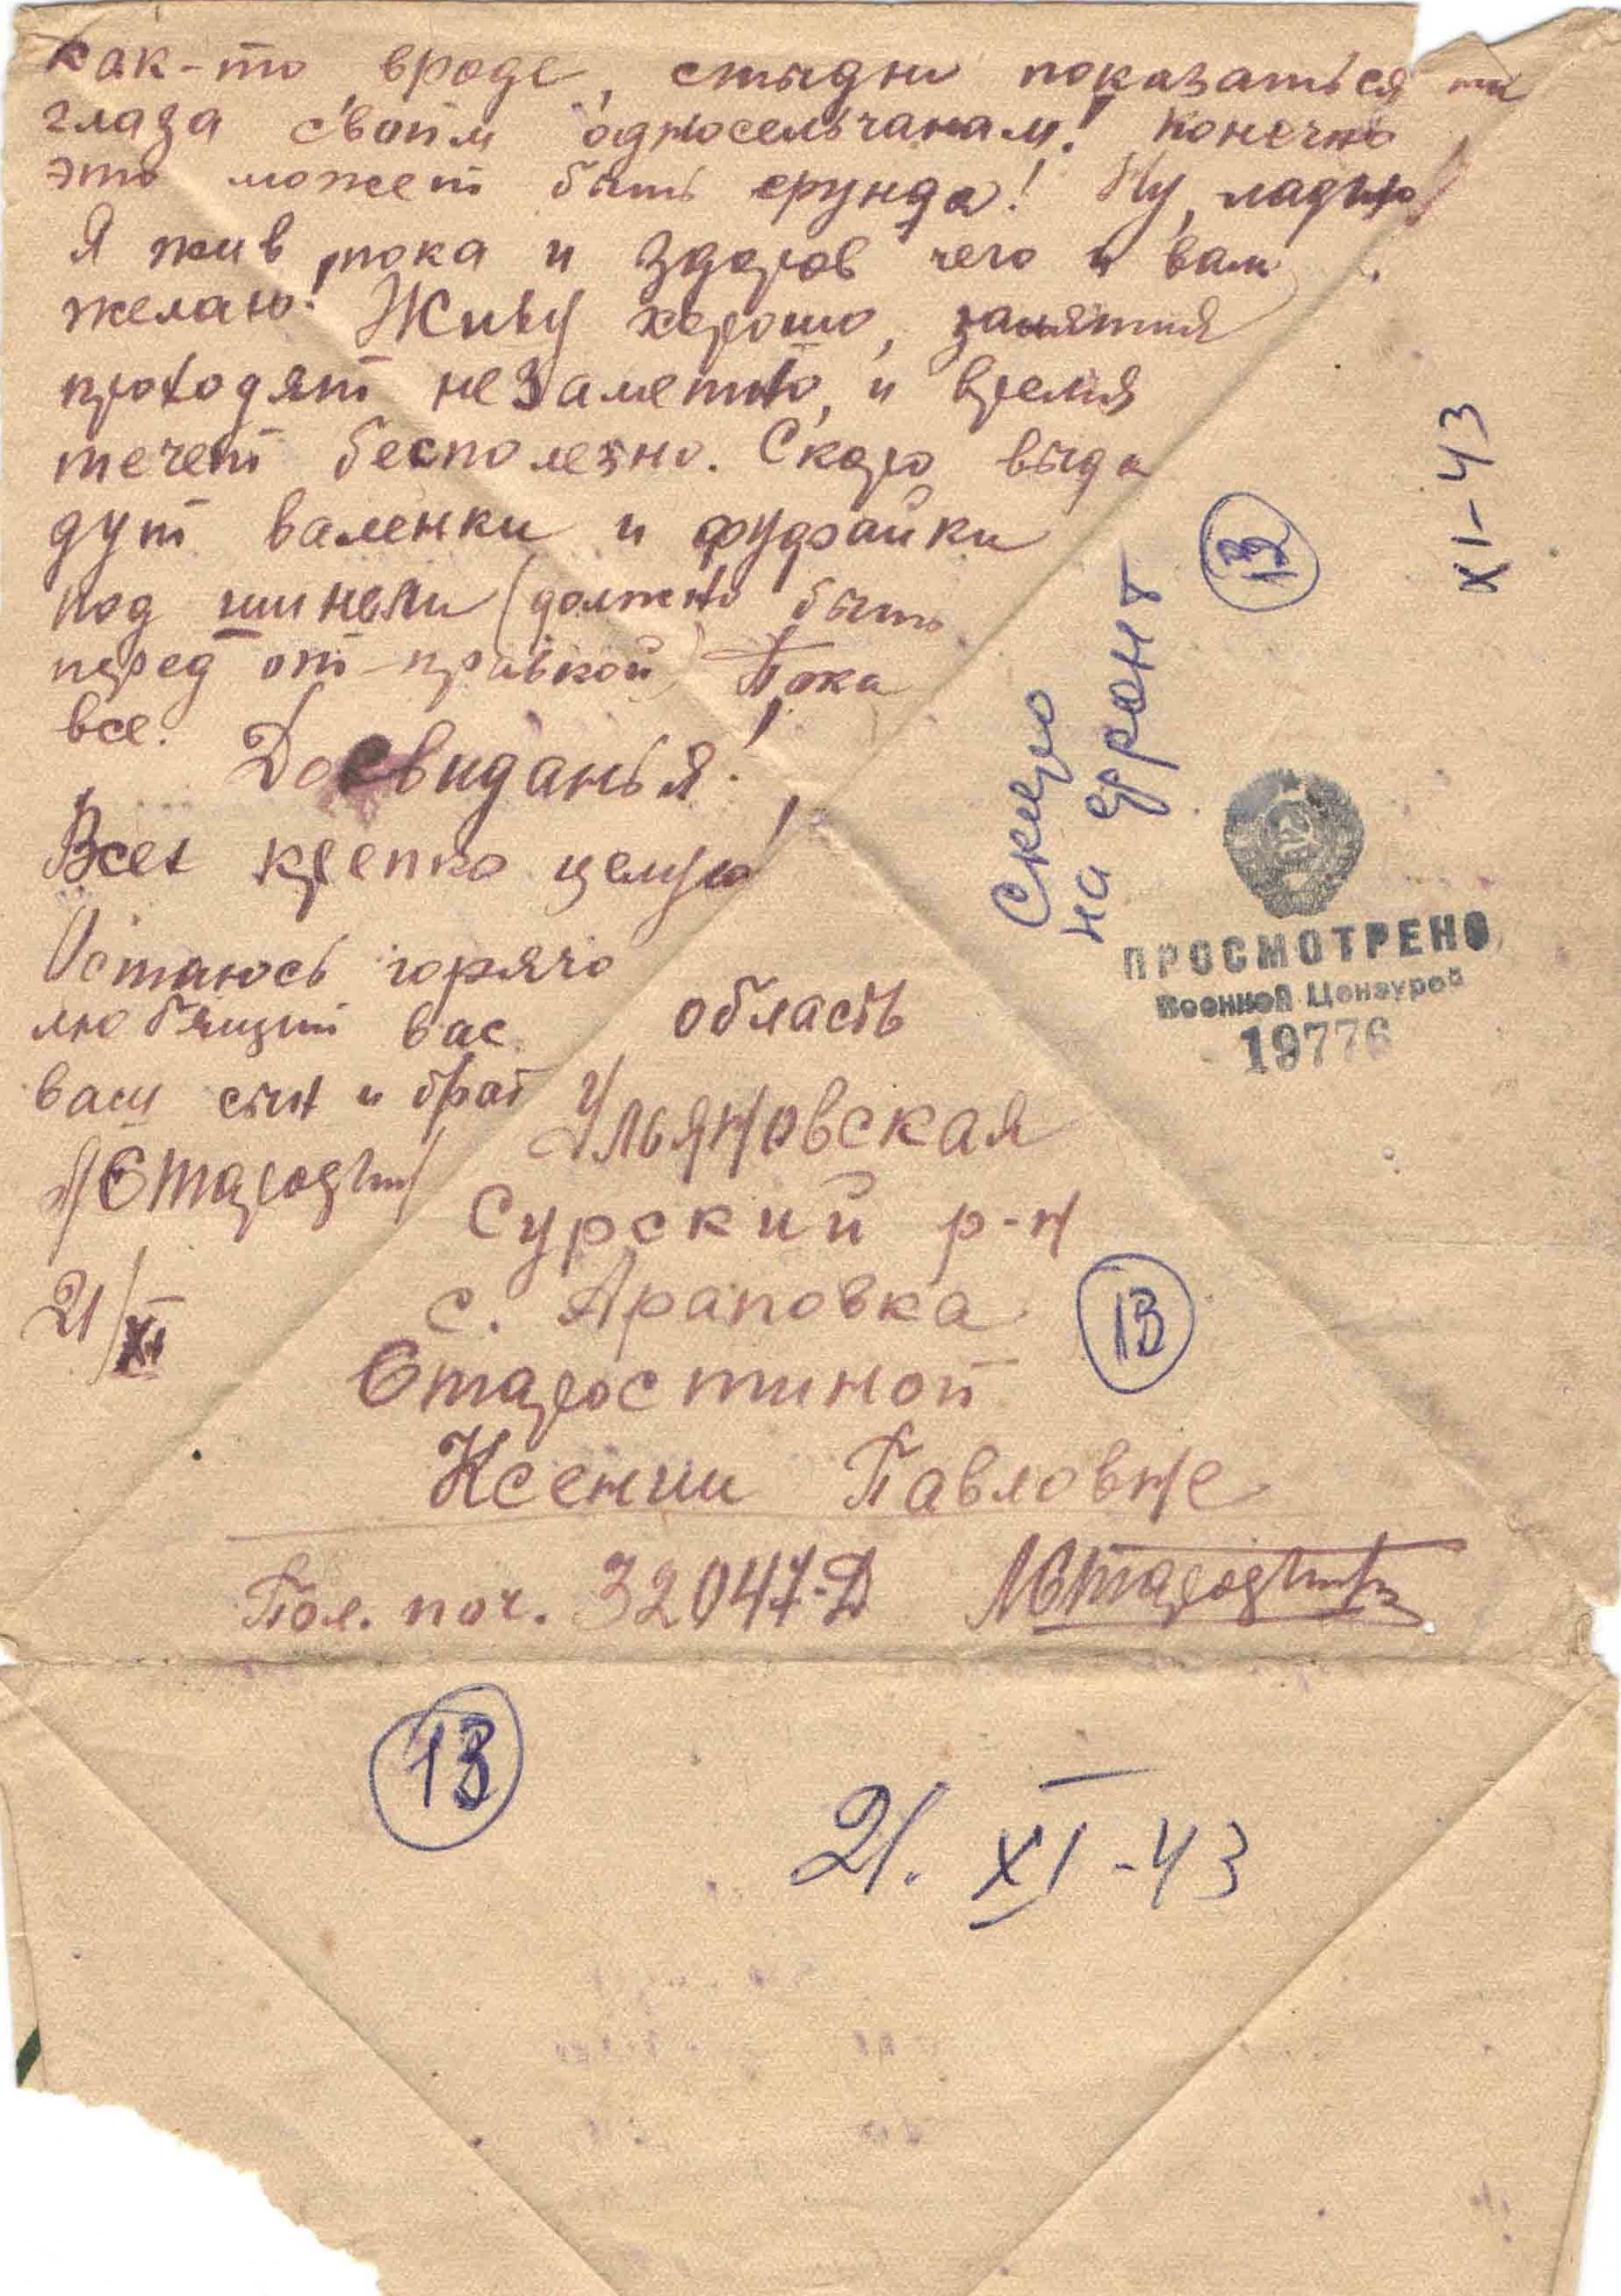 как-то вроде, стыдно показаться на
глаза своим односельчанам! Конечно
это может быть ерунда! Ну, ладно!
Я жив, пока и здоров чего и вам
желаю! Живу хорошо, занятия
проходят незаметно, и время
течет бесполезно. Скоро выда
дут валенки и фуфайки
под шинели (должно быть
перед от-правкой) Пока
все.
Досвиданья!
Всех крепко целую!
Остаюсь горячо
любящий вас
ваш сын и брат
21/XI
Скоро
на фронт
13
XI-43
ПРОСМОТРЕНО
Военной Цензурой
19776
область
Ульяновская
Сурский р-н
с. Араповка
13
Старостиной
Ксении Павловне
Пол. поч. 32047-Д
13
21. XI-43